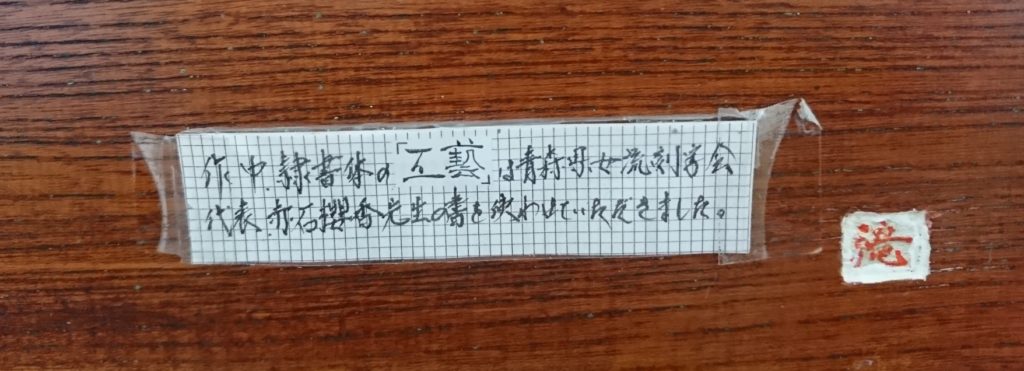 作中、隷書体の「工藝」は青森県女流刻字会
代表、赤石撰香先生の書を使わせていただきました。
滝